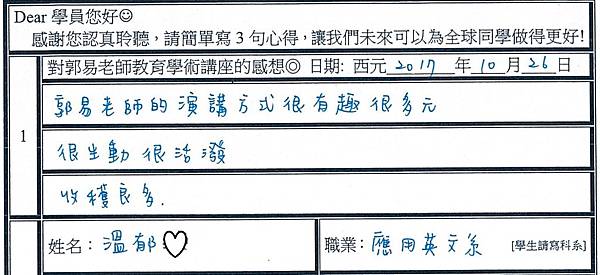 Dear 學員您好☺
感謝您認真聆聽，請簡單寫 3 句心得，讓我們未來可以為全球同學做得更好!
對郭易老師教育學術講座的感想◎ 日期: 西元 2017 年 10 月 26 日
1
郭易老師的演講方式很有趣很多元
很生動很活潑
收穫良多.
姓名：溫郁♡
職業：應用英文系 [學生請寫科系]